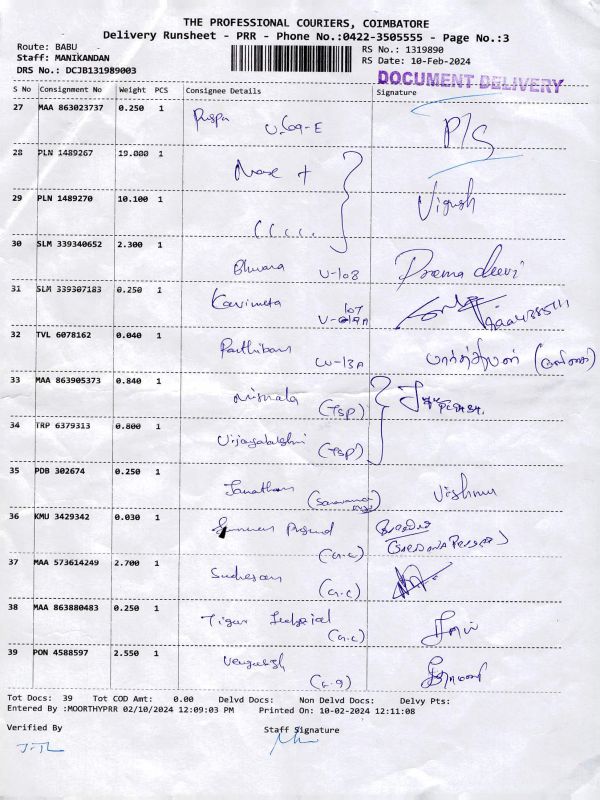 THE PROFESSIONAL COURIERS, COIMBATORE
Delivery Runsheet - PRR - Phone No.:0422-3505555 - Page No.:3
Route: BABU
Staff: MANIKANDAN
DRS No.: DCJB131989003
RS No.: 1319890
RS Date: 10-Feb-2024
DOCUMENT DELIVERY
S No Consignment No Weight PCS Consignee Details Signature
27 MAA 863023737 0.250 1
P/S
28 PLN 1489267 19.000 1
29 PLN 1489270 10.100 1
Vignesh
30 SLM 339340652 2.300 1
Bhuvana U-108 Prema deevi
31 SLM 339307183 0.250 1
32 TVL 6078162 0.040 1
Parthiban W-13A பார்த்திபன்
33 MAA 863905373 0.840 1
Nirmala (TSP)
34 TRP 6379313 0.800 1
Vijayalakshmi (TSP)
35 PDB 302674 0.250 1
Janathan Vishnu
36 KMU 3429342 0.030 1
(G.C)
37 MAA 573614249 2.700 1
Sudhesan (G.C)
38 MAA 863880483 0.250 1
(G.C)
39 PON 4588597 2.550 1
Tot Docs: 39 Tot COD Amt: 0.00 Delvd Docs: Non Delvd Docs: Delvy Pts:
Entered By :MOORTHYPRR 02/10/2024 12:09:03 PM Printed On: 10-02-2024 12:11:08
Verified By Staff Signature